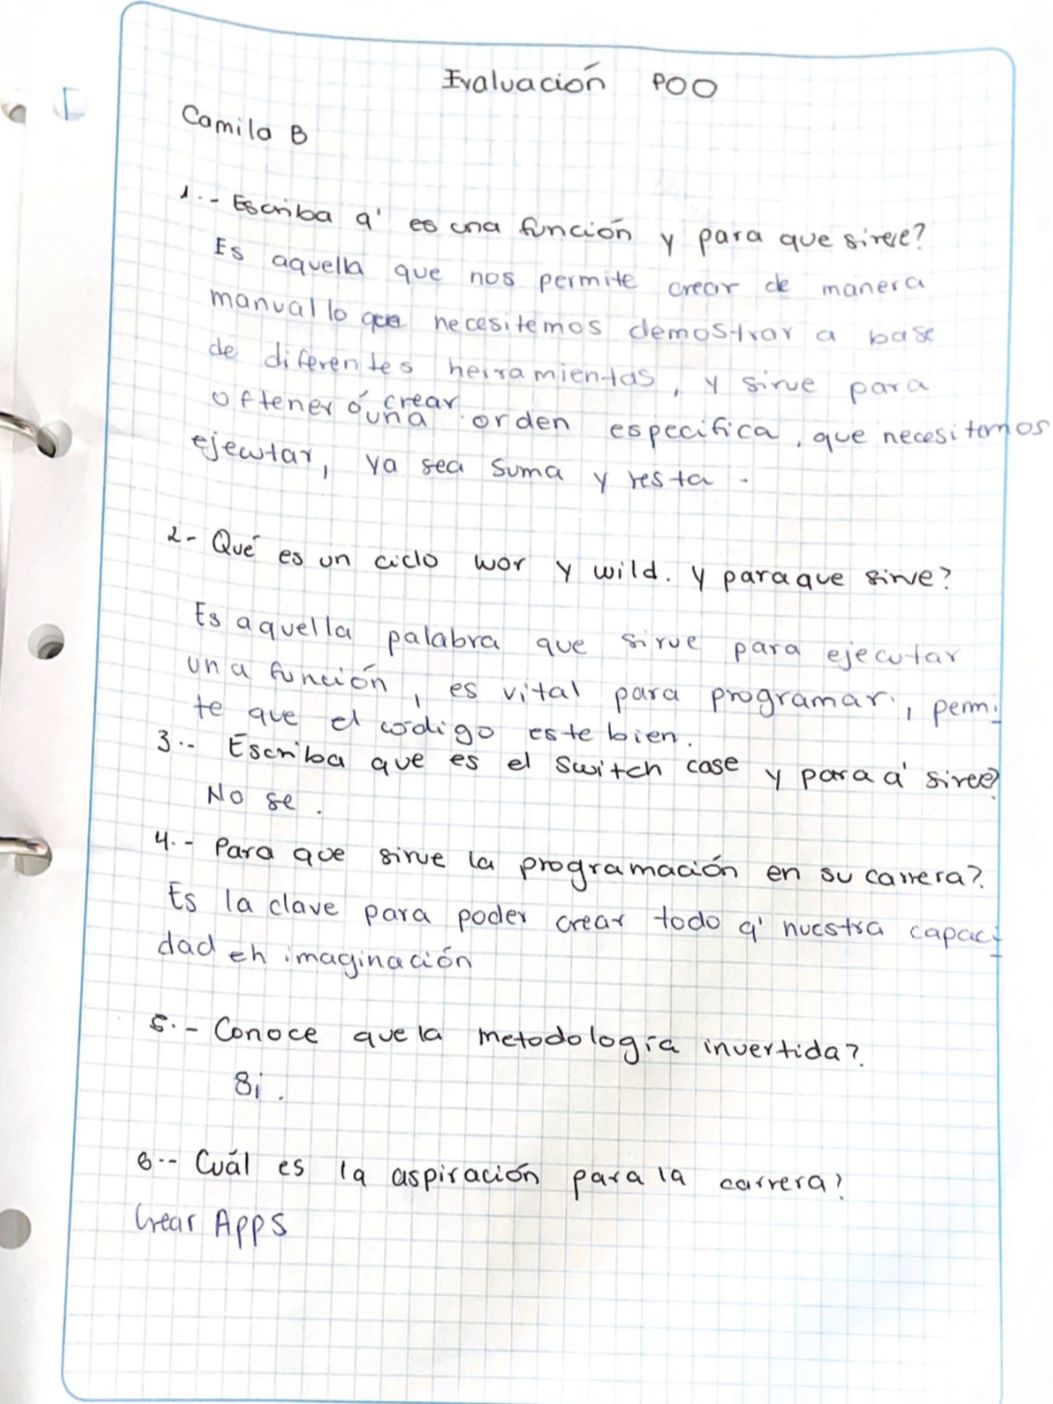 Evaluación POO
Camila B
1.- Escriba q' es una función y para que sirve?
Es aquella que nos permite crear de manera
manual lo que necesitemos demostrar a base
de diferentes herramientas, y sirve para
oftener ó crear
una orden especifica, que necesitemos
ejecutar, ya sea suma y resta.
2- Qué es un ciclo wor y wild. y para que sirve?
Es aquella palabra que sirve para ejecutar
una función, es vital para programar, permi
te que el código este bien.
3.- Escriba que es el switch case y para q' sirve?
No se.
4.- Para que sirve la programación en su carrera?
Es la clave para poder crear todo q' nuestra capaci
dad en imaginación
5.- Conoce que la metodología invertida?
Si.
6.- Cuál es la aspiración para la carrera?
Crear Apps